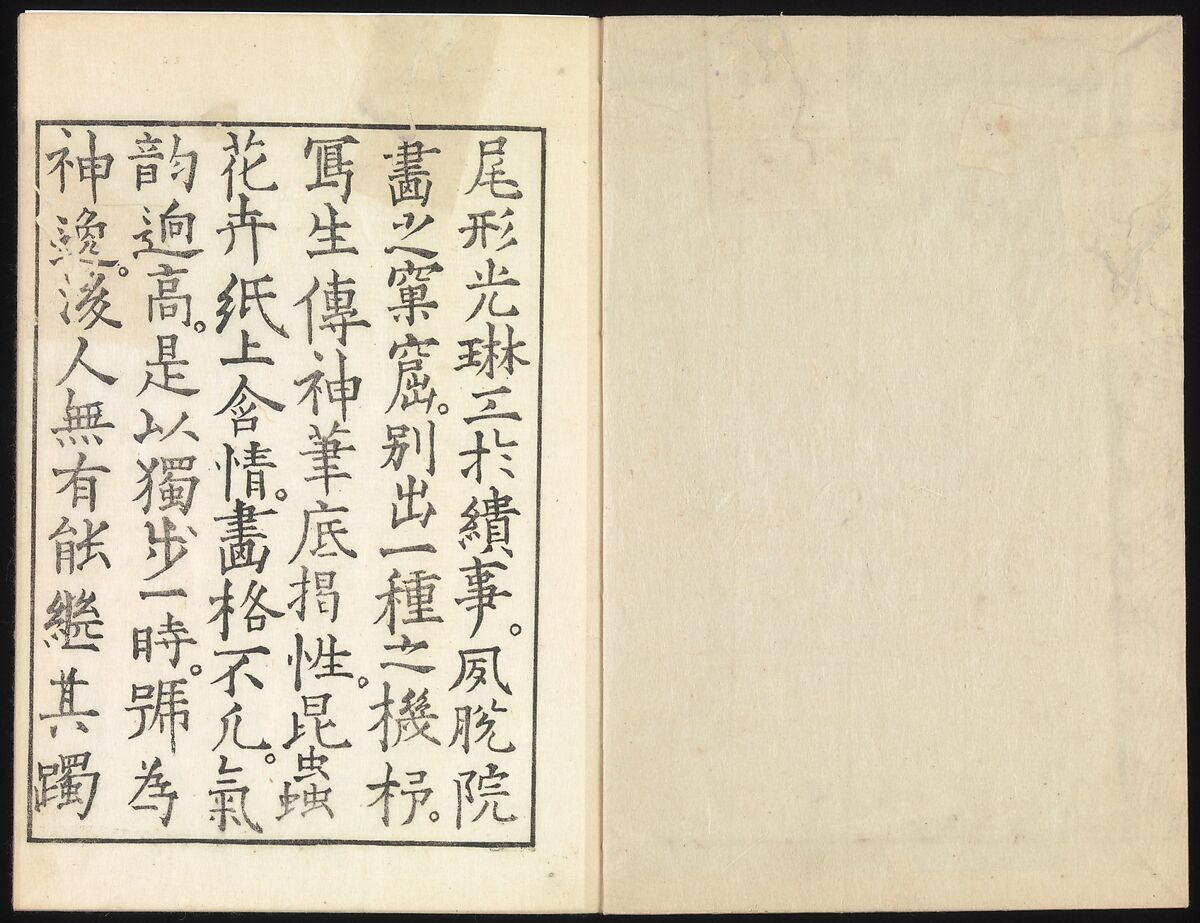 尾形光琳工於繢事。夙脫院
畫之窠窟。別出一種之機杼。
寫生傳神筆底揭性。昆蟲
花卉紙上含情。畫格不凡。氣
韵逈高。是以獨步一時。號為
神 後人無有能繼其躅